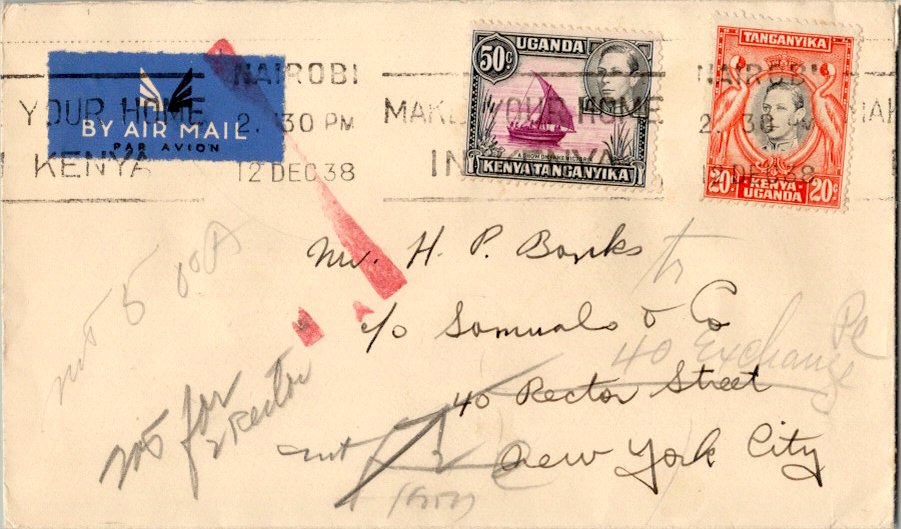 BY AIR MAIL
PAR AVION
NAIROBI
2. 30 PM
12 DEC 38
YOUR HOME
KENYA
MAKE YOUR HOME
IN KENYA
NAIROBI
2. 30 PM
12 DEC 38
MAK
50c UGANDA
KENYA TANGANYIKA
TANGANYIKA
20c KENYA UGANDA 20c
Mr. H. P. Banks
c/o Samuals & Co
40 Rector Street
New York City
to
40 Exchange Pl
not for
2 Rector
not